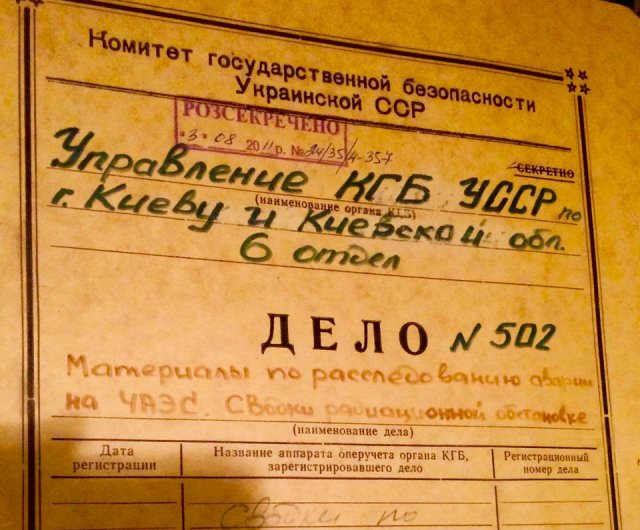 Комитет государственной безопасности
Украинской ССР
РОЗСЕКРЕЧЕНО
"3" 08 2011 р. № 24/35/4-357
СЕКРЕТНО
Управление КГБ УССР по
(наименование органа КГБ)
г. Киеву и Киевской обл.
6 отдел
ДЕЛО N 502
Материалы по расследованию аварии
на ЧАЭС. Сводки радиационной обстановке
(наименование дела)
Дата
регистрации
Название аппарата оперучета органа КГБ,
зарегистрировавшего дело
Регистрационный
номер дела
Сводки по